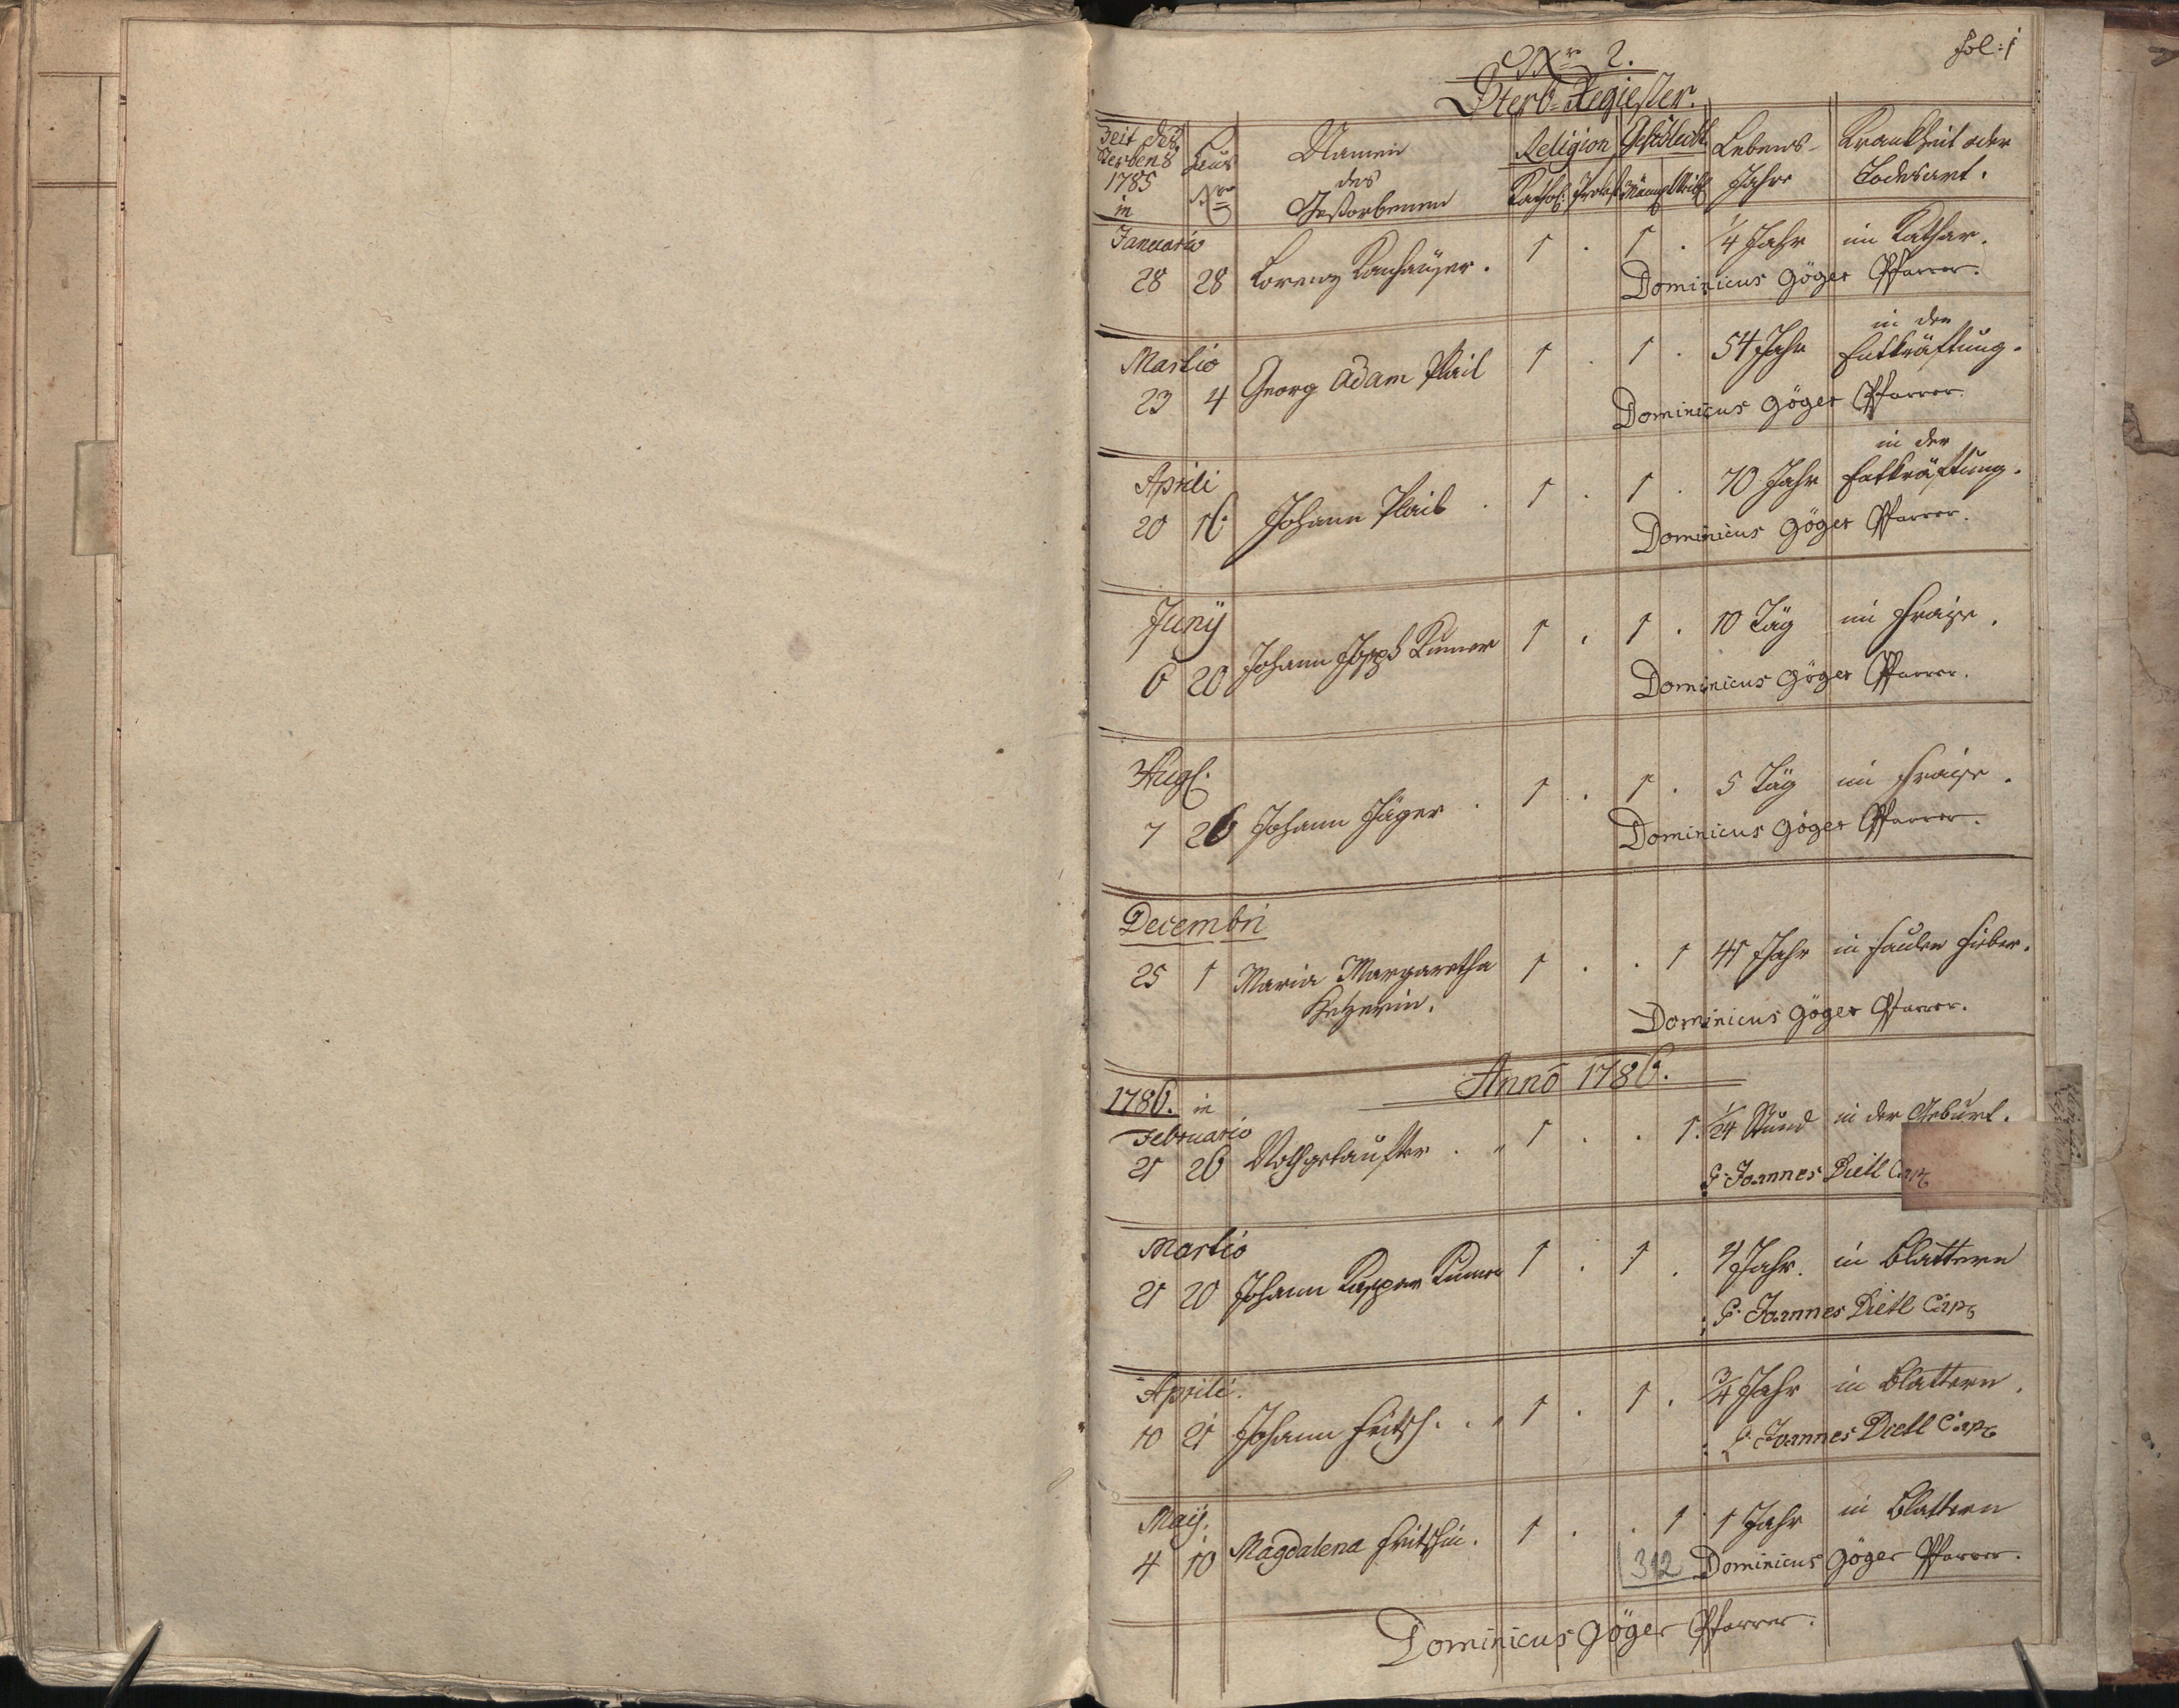 fol: 1
Nro 2.
Sterb-Regiester.
Zeit des Sterbens 1785 in
Haus Nro
Namen des Gestorbenen
Religion
Kathol: Protest
Geschlecht
Männ: Weibl
Lebens-Jahre
Krankheit oder Todesart.
Januario
28 28 Lorenz 1 . 1 . 1/4 Jahr im Kathar.
Dominicus Göger Pfarrer.
Martio
in der
23 4 Georg Adam Plail 1 . 1 . 54 Jahr Entkräftung.
Dominicus Göger Pfarrer.
Aprili
in der
20 16 Johann Plail . 1 . 1 . 70 Jahr Entkräftung.
Dominicus Göger Pfarrer.
Junÿ
6 20 Johann Joseph 1 . 1 . 10 Täg im Fraise.
Dominicus Göger Pfarrer.
Aug.
7 26 Johann Jäger . 1 . 1 . 5 Täg im Fraise.
Dominicus Göger Pfarrer.
Decembri
25 1 Maria Margaretha 1 . . 1 41 Jahr in faulen Fieber.
Dominicus Göger Pfarrer.
Anno 1786.
1786. in
Februario
21 26 Nothgetaufter . 1 . . 1. 1/24 Stund in der Geburt.
P. Joannes Dietl Cap
Martio
21 20 Johann Kaspar 1 . 1 . Jahr. in Blattern
P. Joannes Dietl Cap
Aprili.
10 21 Johann Fritsch . . 1 . 1 . 3/4 Jahr in Blattern.
P. Joannes Dietl Cap
Maÿ.
4 10 Magdalena Fritschin. 1 . . 1 1 Jahr in Blattern
312
Dominicus Göger Pfarrer.
Dominicus Göger Pfarrer.